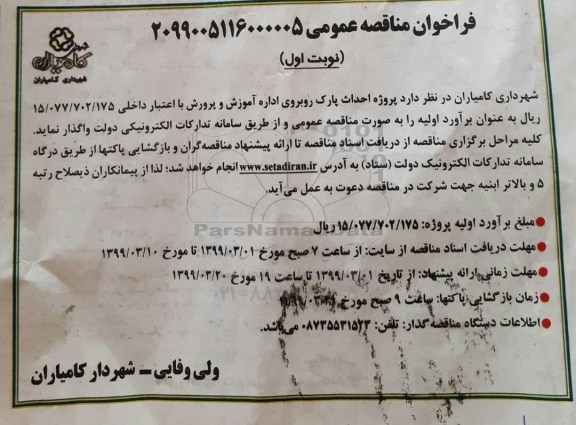 فراخوان مناقصه عمومی ۲۰۹۹۰۰۵۱۱۶۰۰۰۰۰۵
(نوبت اول)
شهرداری کامیاران
شهرداری کامیاران در نظر دارد پروژه احداث پارک روبروی اداره آموزش و پرورش با اعتبار داخلی ۱۵/۰۷۷/۷۰۲/۱۷۵
ریال به عنوان برآورد اولیه را به صورت مناقصه عمومی و از طریق سامانه تدارکات الکترونیکی دولت واگذار نماید.
کلیه مراحل برگزاری مناقصه از دریافت اسناد مناقصه تا ارائه پیشنهاد مناقصه‌گران و بازگشایی پاکتها از طریق درگاه
سامانه تدارکات الکترونیک دولت (ستاد) به آدرس www.setadiran.ir انجام خواهد شد؛ لذا از پیمانکاران ذیصلاح رتبه
۵ و بالاتر ابنیه جهت شرکت در مناقصه دعوت به عمل می‌آید.
ParsNamadData
●مبلغ برآورد اولیه پروژه: ۱۵/۰۷۷/۷۰۲/۱۷۵ ریال
●مهلت دریافت اسناد مناقصه از سایت: از ساعت ۷ صبح مورخ ۱۳۹۹/۰۳/۰۱ تا مورخ ۱۳۹۹/۰۳/۱۰
●مهلت زمانی ارائه پیشنهاد: از تاریخ ۱۳۹۹/۰۳/۰۱ تا ساعت ۱۹ مورخ ۱۳۹۹/۰۳/۲۰
●زمان بازگشایی پاکتها: ساعت ۹ صبح مورخ
●اطلاعات دستگاه مناقصه گذار: تلفن: ۰۸۷۳۵۵۳۱۵۲۳ می‌باشد.
ولی وفایی ــ شهردار کامیاران